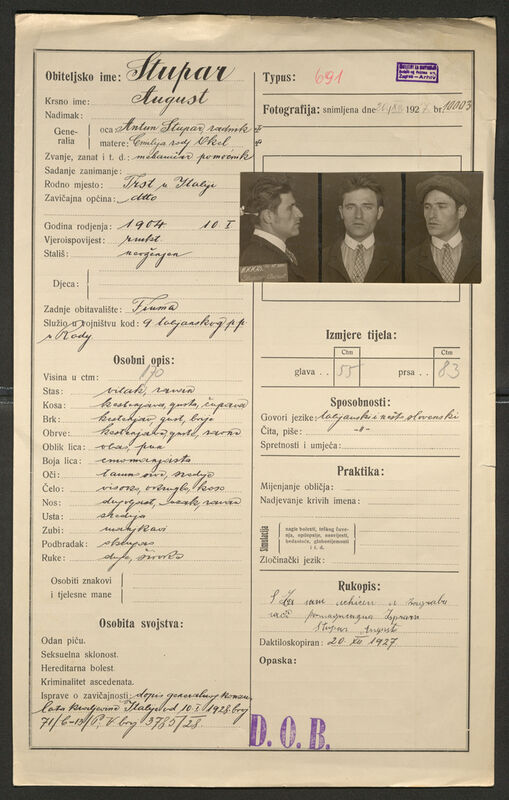 Obiteljsko ime: Stupar
Krsno ime: August
Nadimak:
Gene-
ralia
oca: Antun Stupar radnik
matere: Emilija rodj. Ukel
Zvanje, zanat i t. d.: mehaničar pomoćnik
Sadanje zanimanje:
Rodno mjesto: Trst u Italiji
Zavičajna općina: dtto
Godina rodjenja: 1904 10. I
Vjeroispovijest: rmkt
Stališ: neoženjen
Djeca:
Zadnje obitavalište: Fiuma
Služio u vojništvu kod: 9 talijanskog p p
Osobni opis:
Visina u ctm: 170
Stas: vitak, ravan
Kosa: kestenjava, gusta, čupava
Brk: kestenjav, gust, brije
Obrve: kestenjave, guste, ravne
Oblik lica: oba, pun
Boja lica: crnomanjasta
Oči: tamno sive, srednje
Čelo: visoko, okruglo, koso
Nos: dugoljast, uzak, ravan
Usta: srednja
Zubi: manjkavi
Podbradak:
Ruke: duge, široke
Osobiti znakovi
i tjelesne mane
Osobita svojstva:
Odan piću.
Seksuelna sklonost.
Hereditarna bolest.
Kriminalitet ascedenata.
Isprave o zavičajnosti: dopis generalnog konzu
lata kraljevine Italije od 10. I 1928 broj
71/6-13/P. V. broj 3785/28.
Typus: 691
Zagreb - Arhiv
Fotografija: snimljena dne 20/XII 1927 br. 10003
Izmjere tijela:
Ctm
Ctm
glava . . 55
prsa . . 83
Sposobnosti:
Govori jezike: talijanski i nešto slovenski
Čita, piše: -"-
Spretnosti i umjeća:
Praktika:
Mijenjanje obličja:
Nadjevanje krivih imena:
Simulacija
nagle bolesti, teškog čuve-
nja, epilepsije, nesvijesti,
bedastoće, gluhonijemosti
i t. d.
Zločinački jezik:
Rukopis:
Stupar Augusto
Daktiloskopiran: 20. XII 1927.
Opaska:
D. O. B.